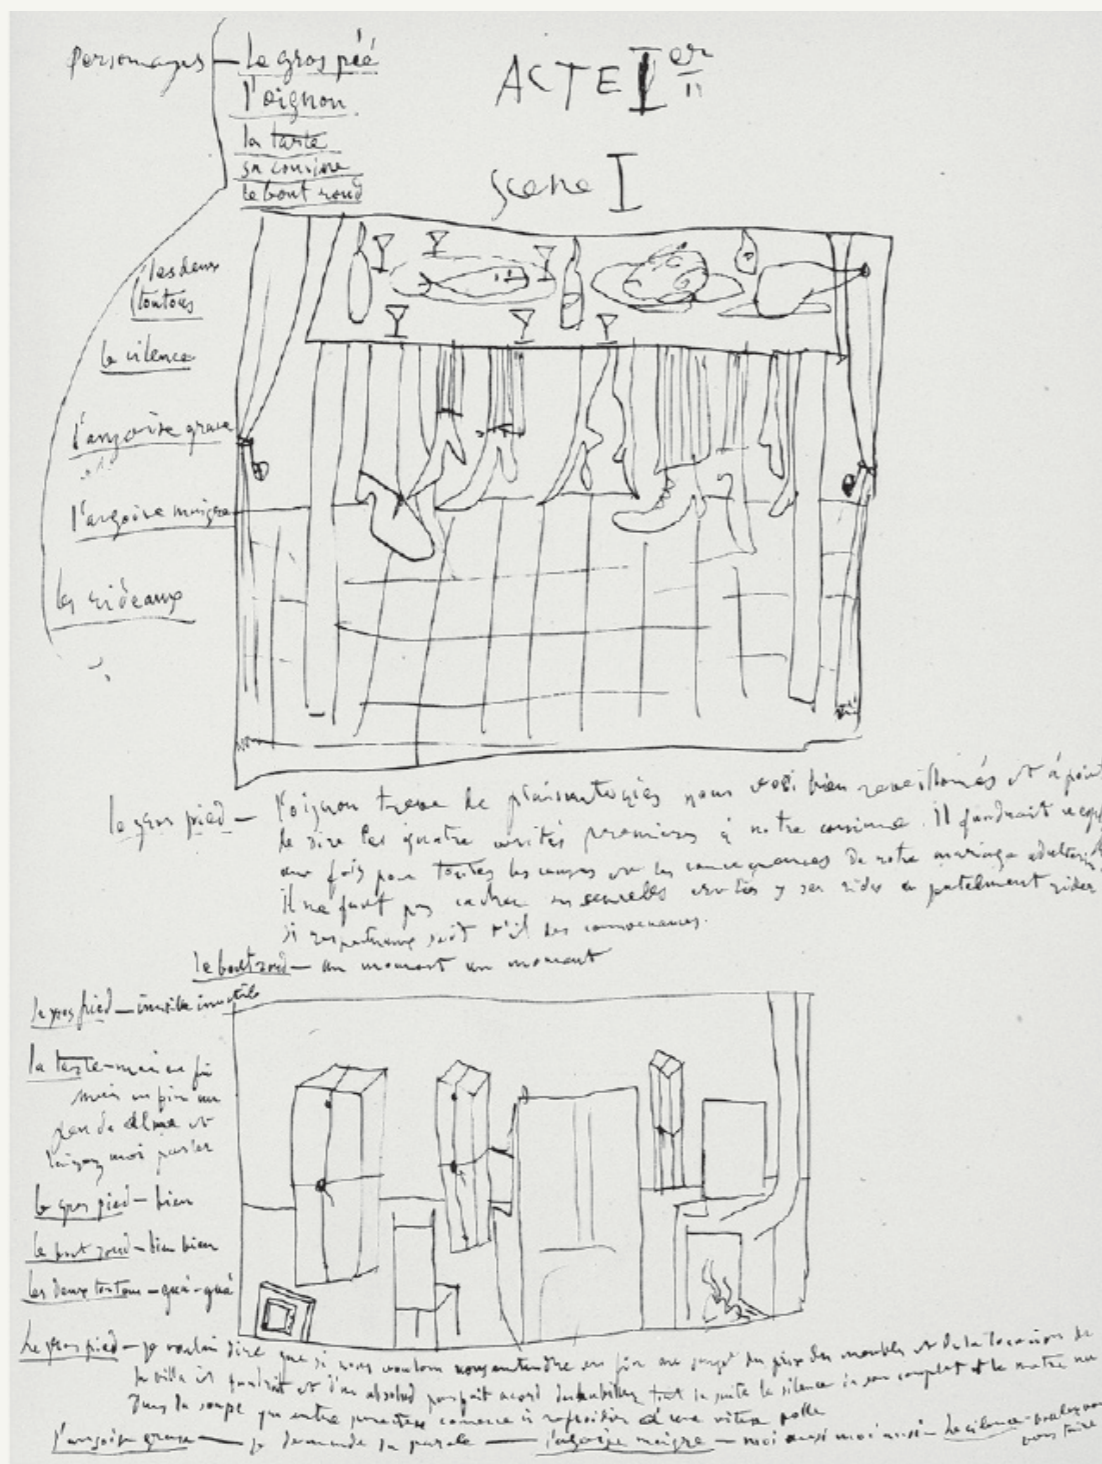 personnages — le gros pié
l'oignon
la tarte
sa cousine
le bout rond
les deux
toutous
le silence
l'angoisse grasse
l'angoisse maigre
les rideaux
ACTE Ier
scene I
le gros pied — l'oignon treve de plaisanteries nous voici bien reveillonés et à point
de dire les quatre vérités premieres à notre cousine. Il faudrait
une fois pour toutes les causes ou les consequences de notre mariage adultérin
il ne faut pas cacher
si respectueux soit t'il des convenances.
le bout rond — un moment un moment
le gros pied — inutile inutile
la tarte — mais en fin
mais en fin un
peu de calme et
laissez moi parler
le gros pied — bien
le bout rond — bien bien
les deux toutous — guà-guà
le gros pied — je voulais dire que si nous voulons nous entendre en fin au sujet du prix des meubles et de la location de
la villa il faudrait et d'un absolud parfait acord deshabiller tout de suite le silence de son complet et le mettre nu
dans la soupe qui entre parentese comence à refroidir d'une vitesse folle
l'angoisse grasse — je demande la parole — l'agoise maigre — moi aussi moi aussi — le silence — voulez vous
vous taire